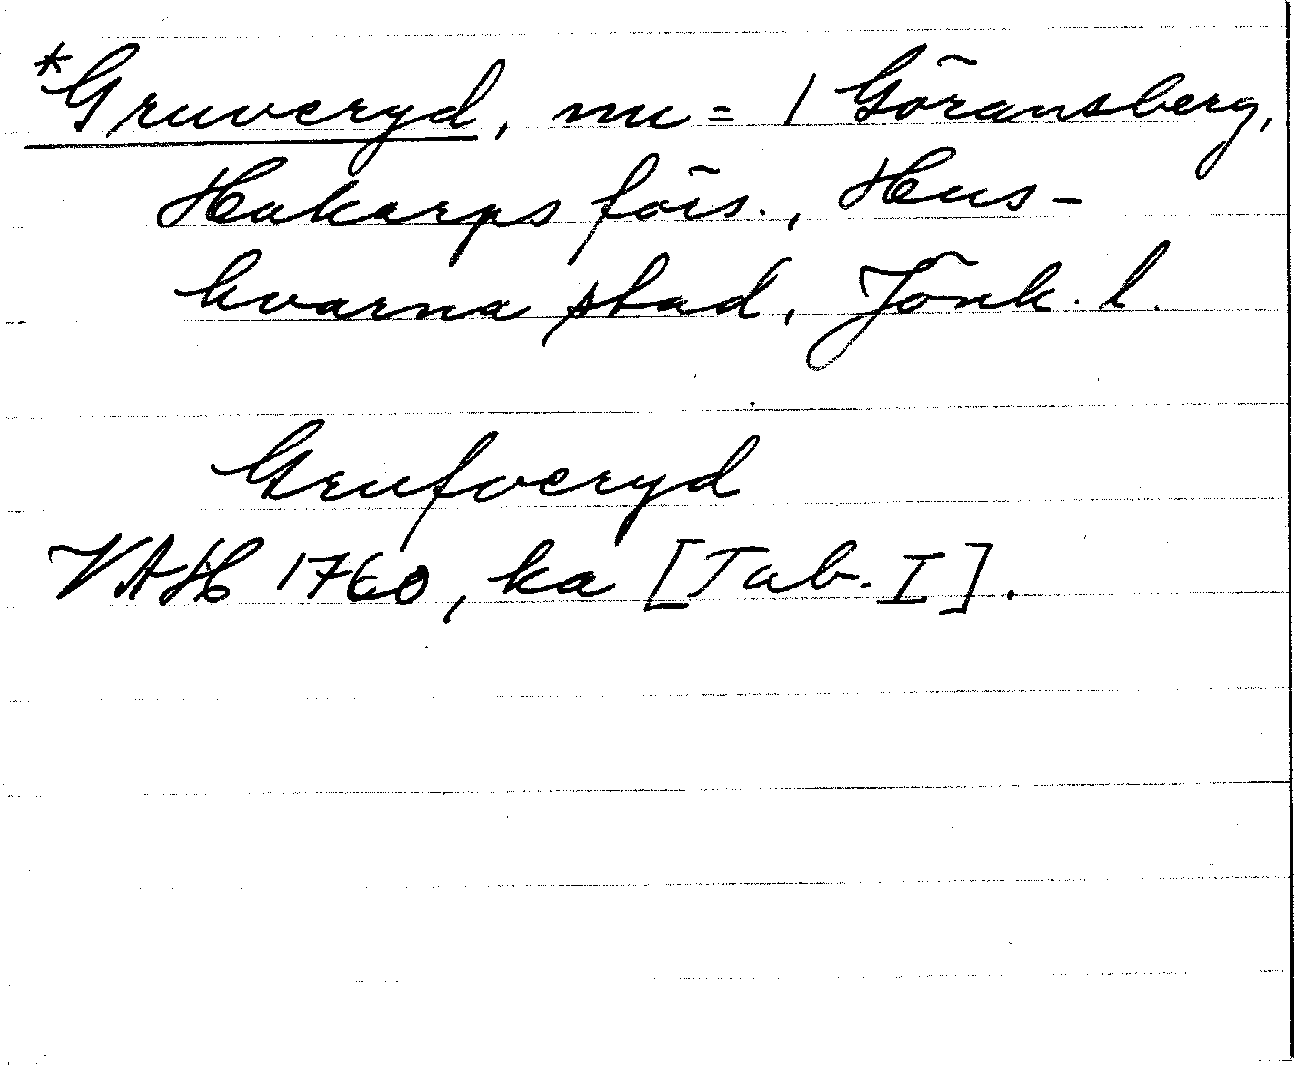 *Gruveryd, nu = 1 Göransberg,
Hakarps förs., Hus-
kvarna stad, Jönk. l.
Grufveryd
VAH 1760, ka [Tab. I].